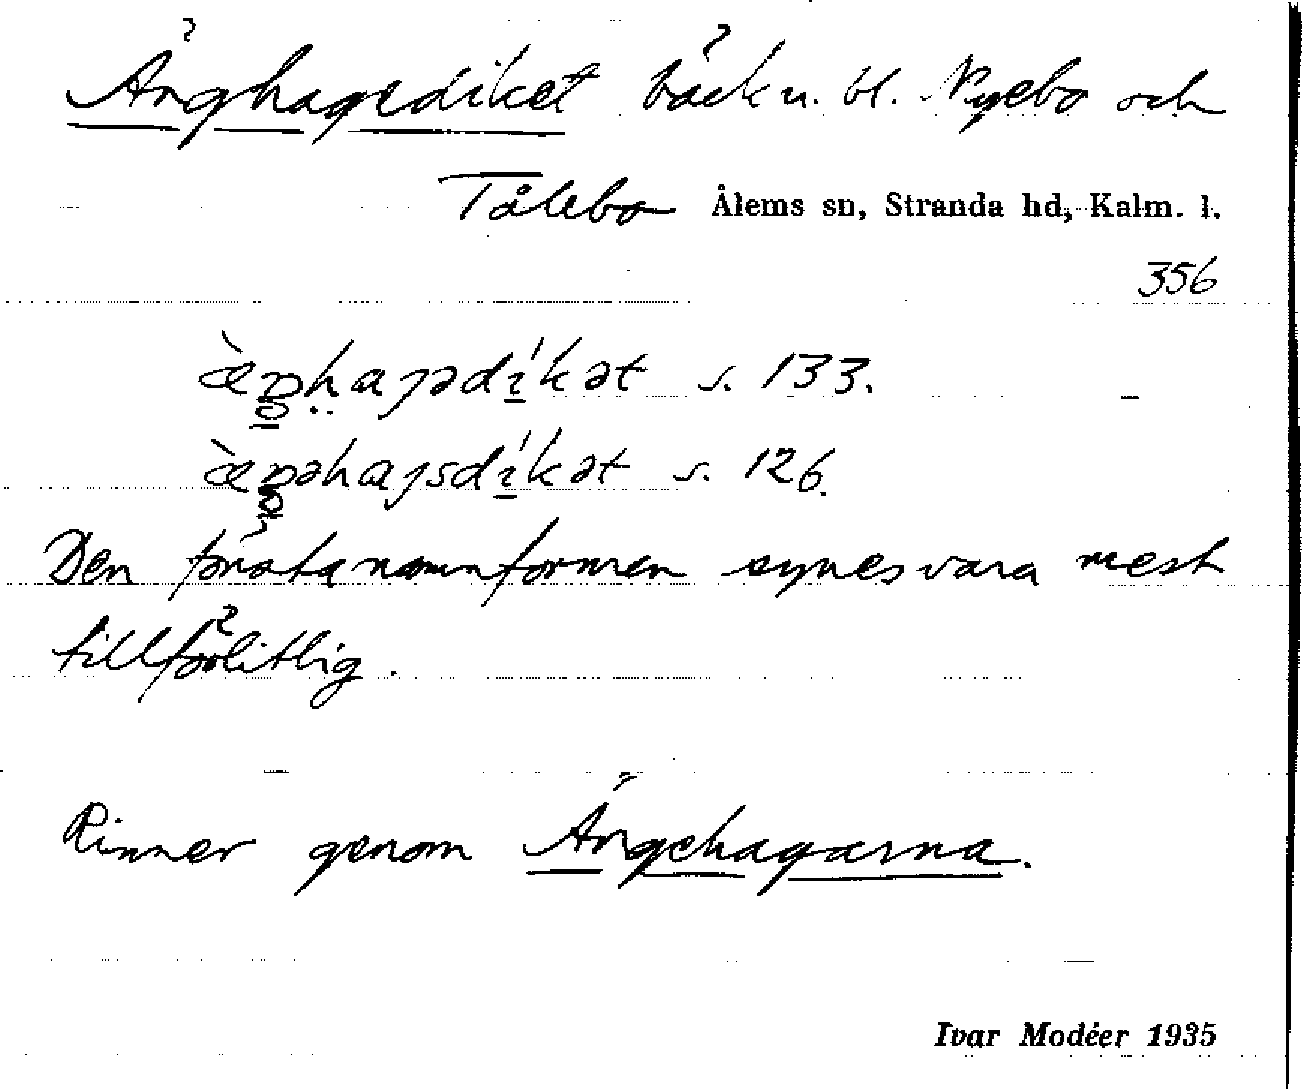 Änghagediket bäck u. bl. Nyebo och
Tålebo Ålems sn, Stranda hd, Kalm. l.
356
s. 133.
s. 126.
Den första namnformen synes vara mest
tillförlitlig.
Rinner genom Ängehagarna.
Ivar Modéer 1935